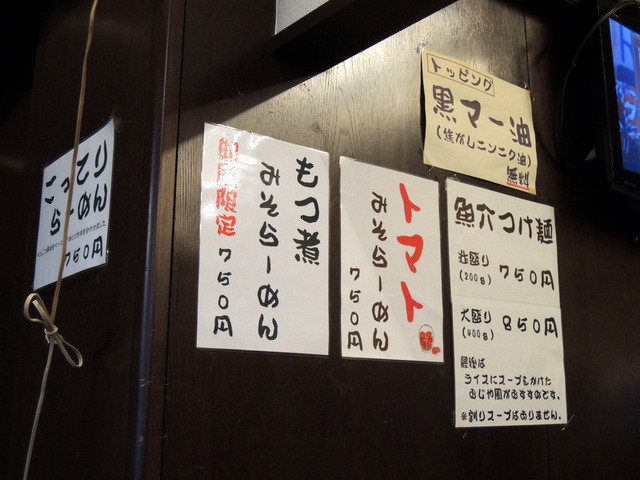 こってり
らーめん
750円
もつ煮
みそらーめん
限定
750円
トマト
みそらーめん
750円
トッピング
黒マー油
(焦がしニンニク油)
無料
魚介つけ麺
並盛り
(200g)
750円
大盛り
(400g)
850円
最後は
ライスにスープをかけた
おじや風がおすすめです。
※割りスープはありません。